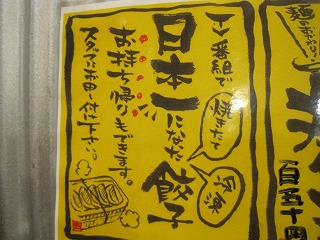 TV番組で
日本一になった餃子
焼きたて
冷凍
お持ち帰りもできます。
スタッフにお申し付け下さい。
麺の
百五十円